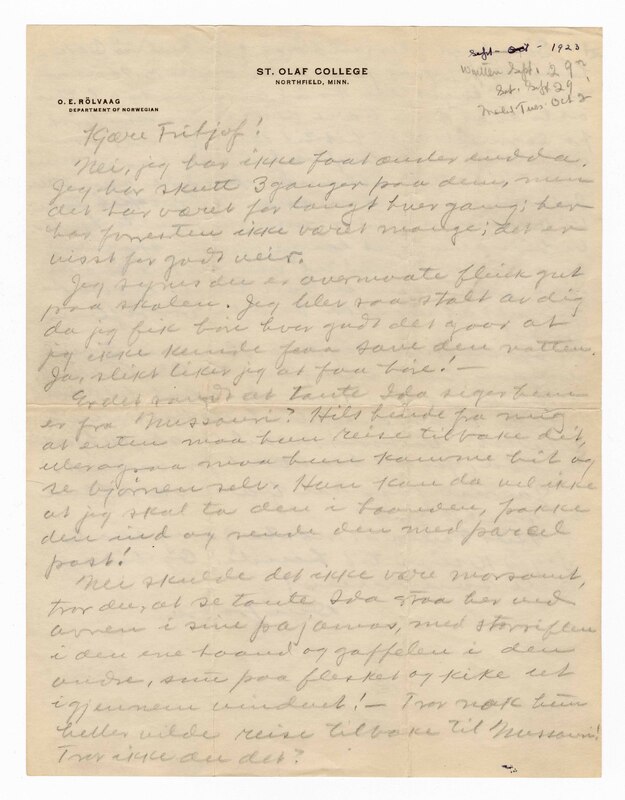 Sept - Oct - 1923
Written Sept. 29
Sat. Sept 29
Mailed Tues. Oct 2
ST. OLAF COLLEGE
NORTHFIELD, MINN.
O. E. RÖLVAAG
DEPARTMENT OF NORWEGIAN
Kjære Fritjof!
Nei, jeg har ikke faat ænder endda.
Jeg har skutt 3 ganger paa dem, men
det har været for langt hver gang; her
har forresten ikke været mange; det er
visst for godt veir.
Jeg synes du er overmaate flink gut
paa skolen. Jeg blev saa stolt av dig
da jeg fik höre hvor godt det gaar at
jeg ikke kunde faa sove den natten.
Ja, slikt liker jeg at faa höre! —
Er det sandt at tante Ida siger hun
er fra Missouri? Hils hende fra mig
at enten maa hun reise tilbake dit,
eller maa hun komme hit og
se björnen selv. Hun kan da vel ikke
at jeg skal ta den i haanden, pakke
den ind og sende den med parcel
post!
Nei skulde det ikke være morsomt,
tror du, at se tante Ida staa her ved
ovnen i sine pajamas, med storriflen
i den ene haand og gaffelen i den
andre, snu paa flesket og kike ut
igjennem vinduet! — Tror nok hun
heller vilde reise tilbake til Missouri!
Tror ikke du det?